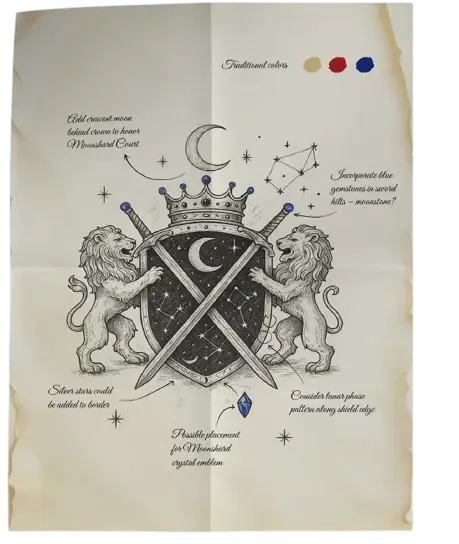 Traditional colors
Add crescent moon
behind crown to honor
Moonshard Court
Incorporate blue
gemstones in sword
hilts – moonstone?
Silver stars could
be added to border
Consider lunar phase
pattern along shield edge
Possible placement
for Moonshard
crystal emblem